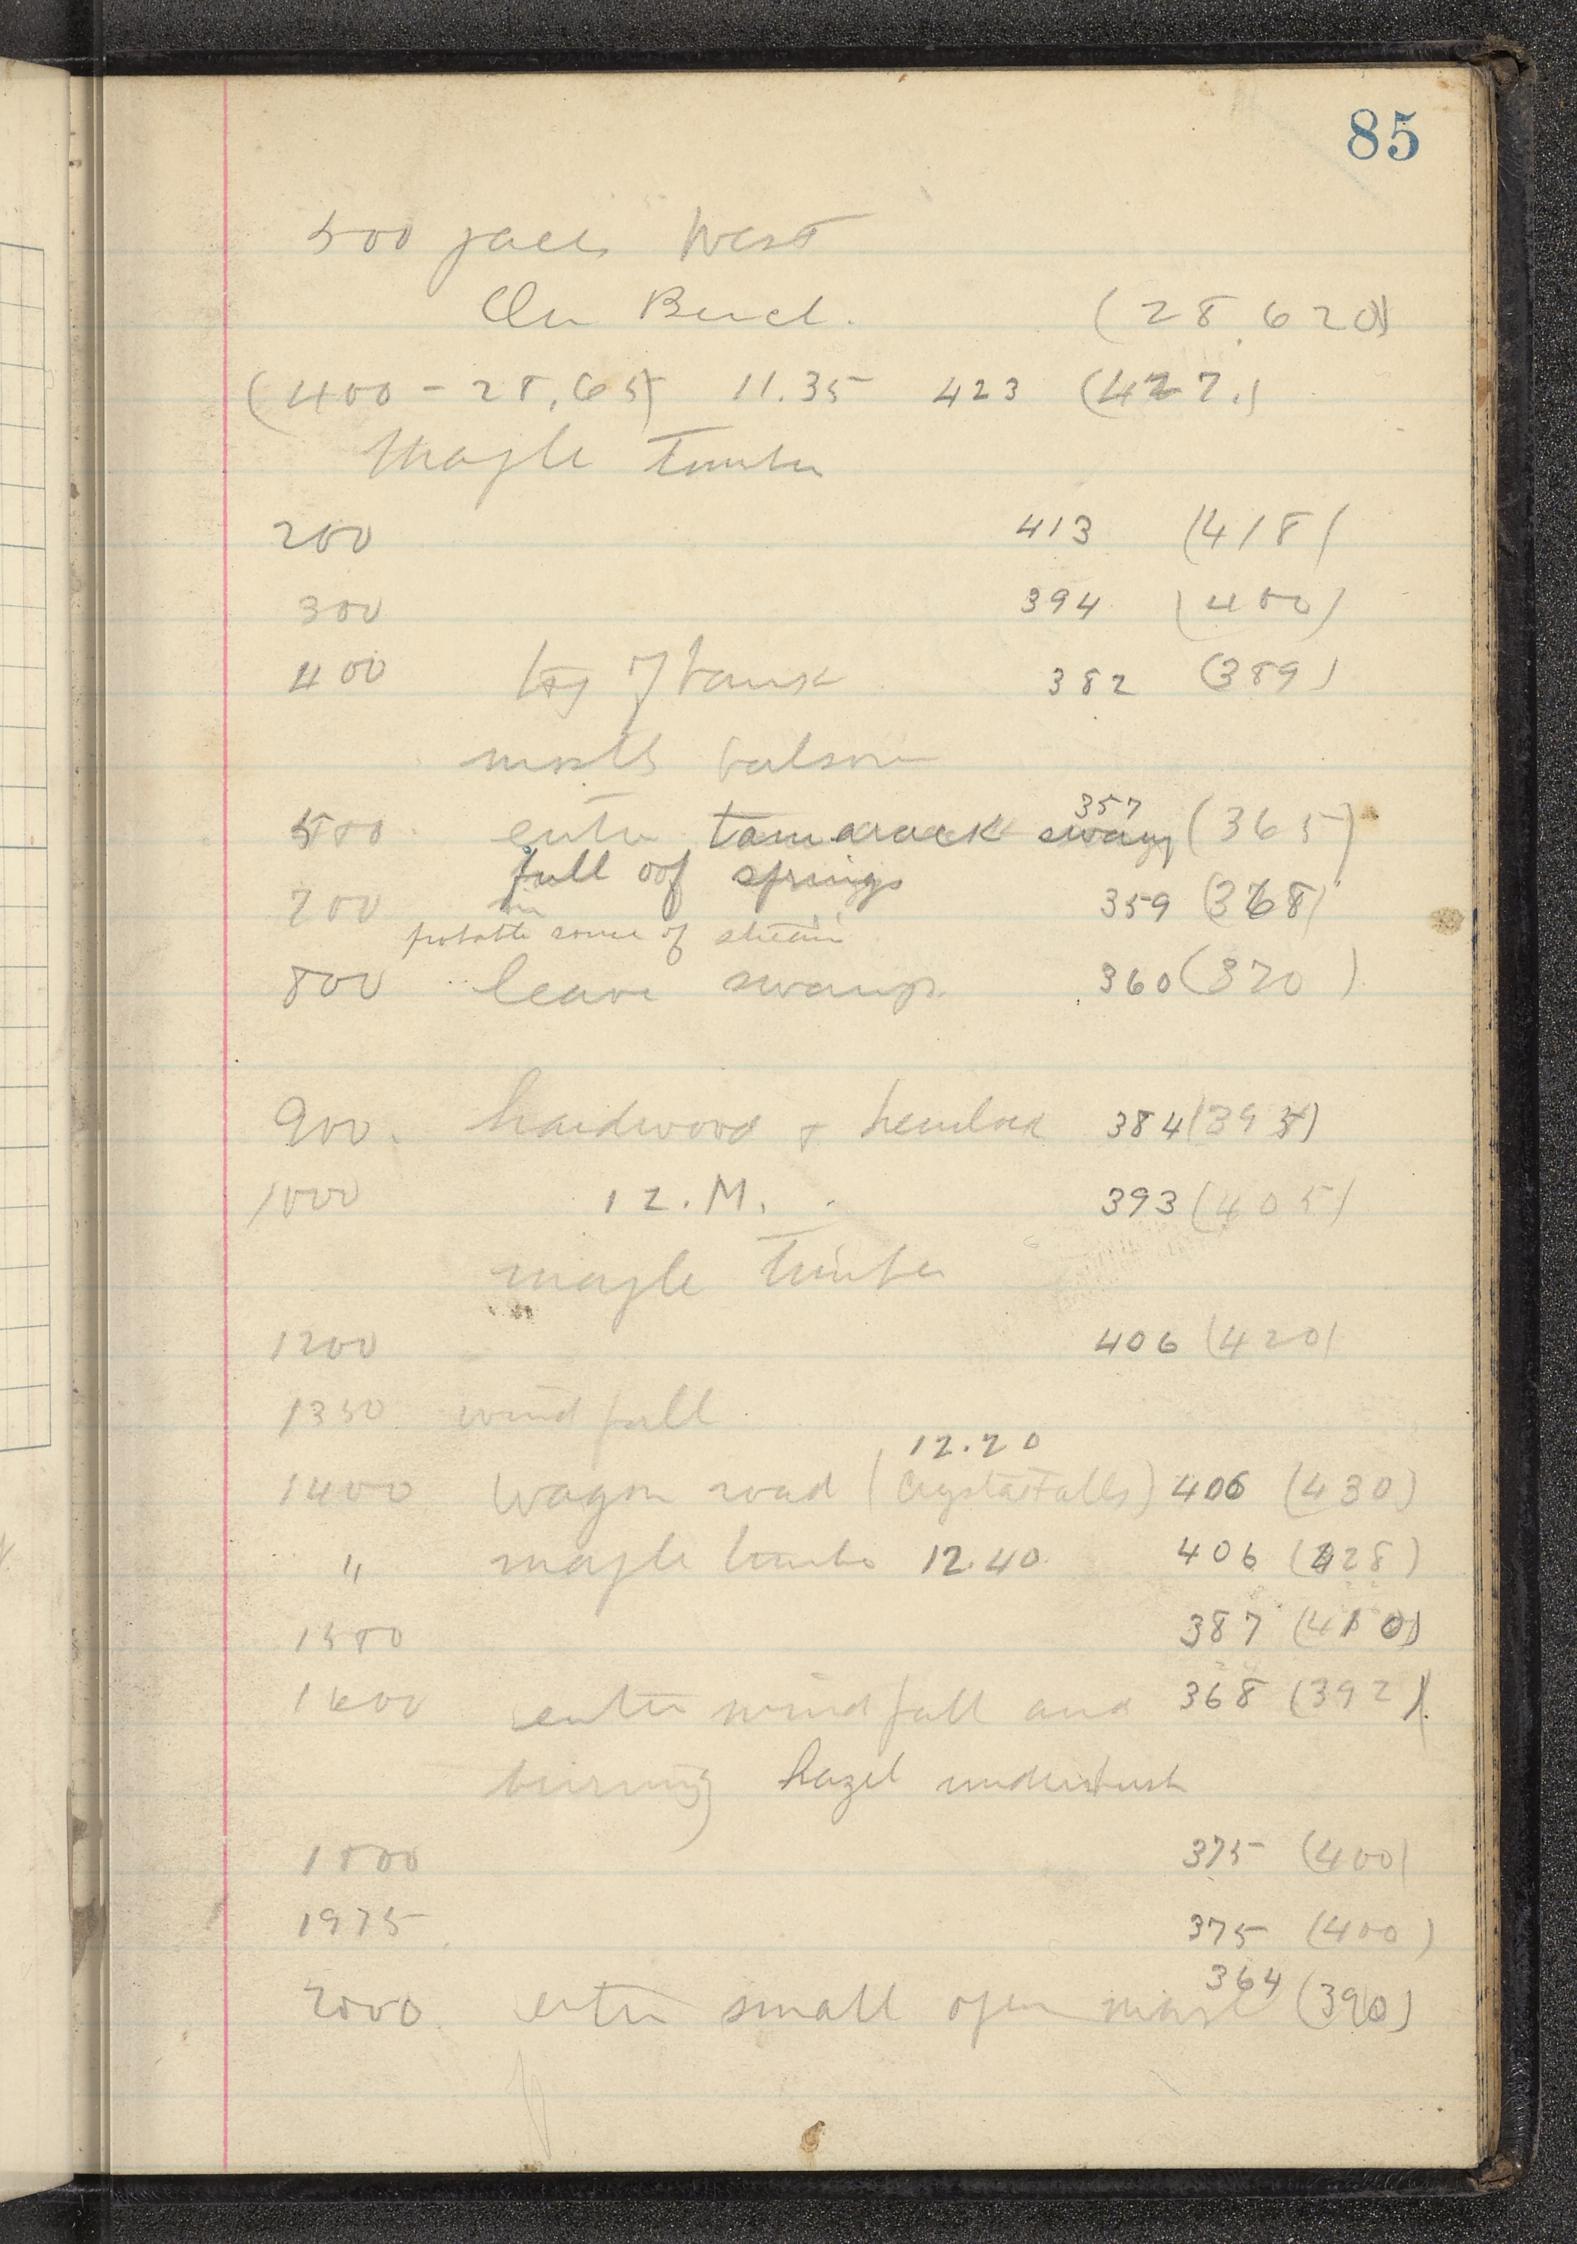 85
500 paces West
On Bench. (28.620)
(400 - 28,65) 11.35 423 (427.)
Maple timber
200 413 (418)
300 394 (400)
400 top of bank 382 (389)
mostly balsam
357
500 enter tamarack swamp (365)
full of springs
700 359 (368)
probable source of stream
800 leave swamp 360 (370)
900. hardwood + hemlock 384 (395)
1000 12.M. 393 (405)
maple timber
1200 406 (420)
1350 windfall
12.20
1400 wagon road (Crystal Falls) 406 (430)
" maple timber 12.40 406 (428)
1500 387 (410)
1600 enter windfall and 368 (392)
burning hazel underbrush
1800 375 (400)
1975 375 (400)
364
2000 enter small open marsh (390)